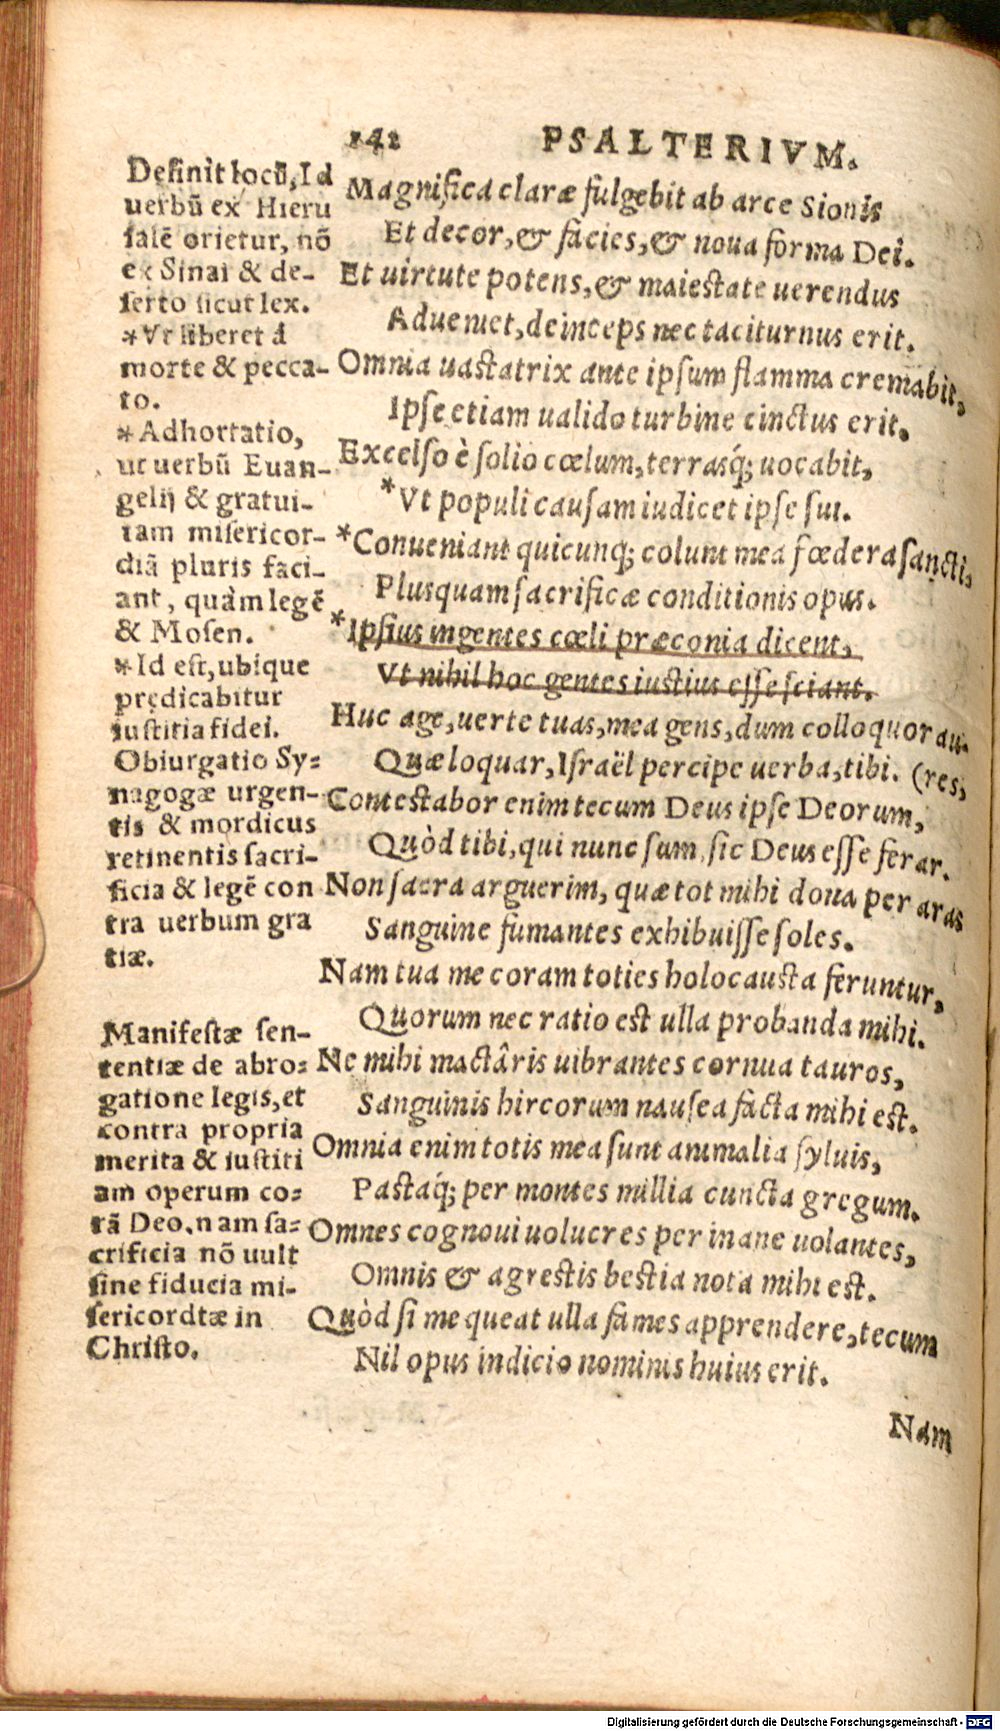 142 PSALTERIVM.
Definit locū, Id
uerbū ex Hieru
salē orietur, nō
ex Sinai & de-
serto sicut lex.
*Vt liberet à
morte & pecca-
to.
*Adhortatio,
ut uerbū Euan-
gelij & gratui-
tam misericor-
diā pluris faci-
ant, quàm legē
& Mosen.
*Id est, ubique
prędicabitur
iustitia fidei.
Obiurgatio Sy-
nagogæ urgen-
tis & mordicus
retinentis sacri-
ficia & legē con
tra uerbum gra
tiæ.
Manifestæ sen-
tentiæ de abro-
gatione legis, et
contra propria
merita & iustiti
am operum co-
rā Deo, nam sa-
crificia nō uult
sine fiducia mi-
sericordtæ in
Christo.
Magnifica claræ fulgebit ab arce Sionis
Et decor, & facies, & noua forma Dei.
Et uirtute potens, & maiestate uerendus
Adueniet, deinceps nec taciturnus erit.
Omnia uastatrix ante ipsum flamma cremabit,
Ipse etiam ualido turbine cinctus erit.
Excelso è solio cœlum, terrasq́; uocabit,
*Vt populi causam iudicet ipse sui.
*Conueniant quicunq; colunt mea fœdera sancti,
Plusquam sacrificæ conditionis opus.
*Ipsius ingentes cœli præconia dicent,
Vt nihil hoc gentes iustius esse sciant.
Huc age, uerte tuas, mea gens, dum colloquor au-
Quæ loquar, Israël percipe uerba, tibi. (res,
Contestabor enim tecum Deus ipse Deorum,
Quòd tibi, qui nunc sum, sic Deus esse ferar.
Non sacra arguerim, quæ tot mihi dona per aras
Sanguine fumantes exhibuisse soles.
Nam tua me coram toties holocausta feruntur,
Quorum nec ratio est ulla probanda mihi.
Ne mihi mactâris uibrantes cornua tauros,
Sanguinis hircorum nausea facta mihi est.
Omnia enim totis mea sunt animalia syluis,
Pastaq́; per montes millia cuncta gregum.
Omnes cognoui uolucres per inane uolantes,
Omnis & agrestis bestia nota mihi est.
Quòd si me queat ulla fames apprendere, tecum
Nil opus indicio nominis huius erit.
Nam
Digitalisierung gefördert durch die Deutsche Forschungsgemeinschaft - DFG